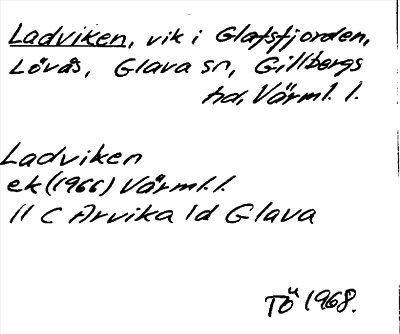 Ladviken, vik i Glafsfjorden,
Lövås, Glava sn, Gillbergs
hd, Värml. l.
Ladviken
ek (1966) Värml. l.
11 C Arvika 1d Glava
Tö 1968.